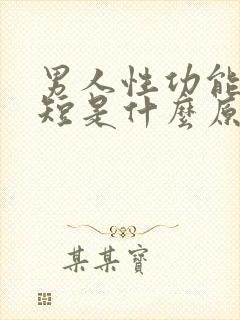 男人性功能
短是什麼原
某某寶